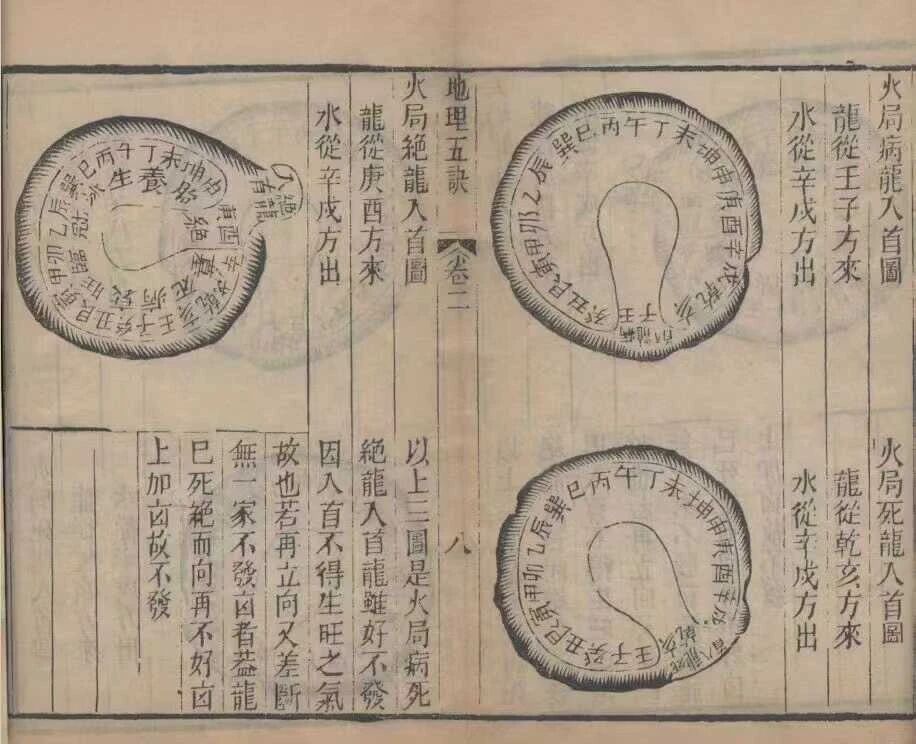 火局病龍入首圖
龍從壬子方來
水從辛戌方出
壬子癸丑艮寅甲卯乙辰巽巳丙午丁未坤申庚酉辛戌乾亥
病龍入首
火局死龍入首圖
龍從乾亥方來
水從辛戌方出
壬子癸丑艮寅甲卯乙辰巽巳丙午丁未坤申庚酉辛戌乾亥
死龍入首
地理五訣
卷二
八
火局絕龍入首圖
龍從庚酉方來
水從辛戌方出
壬子癸丑艮寅甲卯乙辰巽巳丙午丁未坤申庚酉辛戌乾亥
生養胎絕墓死病衰旺臨冠沐
絕龍入首
以上三圖是火局病死
絕龍入首龍雖好不發
因入首不得生旺之氣
故也若再立向又差斷
無一家不發凶者葢龍
巳死絕而向再不好凶
上加凶故不發